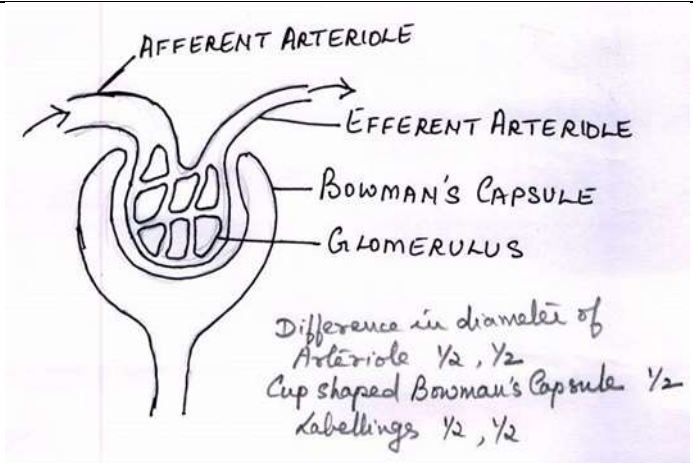 AFFERENT ARTERIOLE
EFFERENT ARTERIOLE
BOWMAN'S CAPSULE
GLOMERULUS
Difference in diameter of
Arteriole 1/2 , 1/2
Cup shaped Bowman's Capsule 1/2
Labellings 1/2 , 1/2